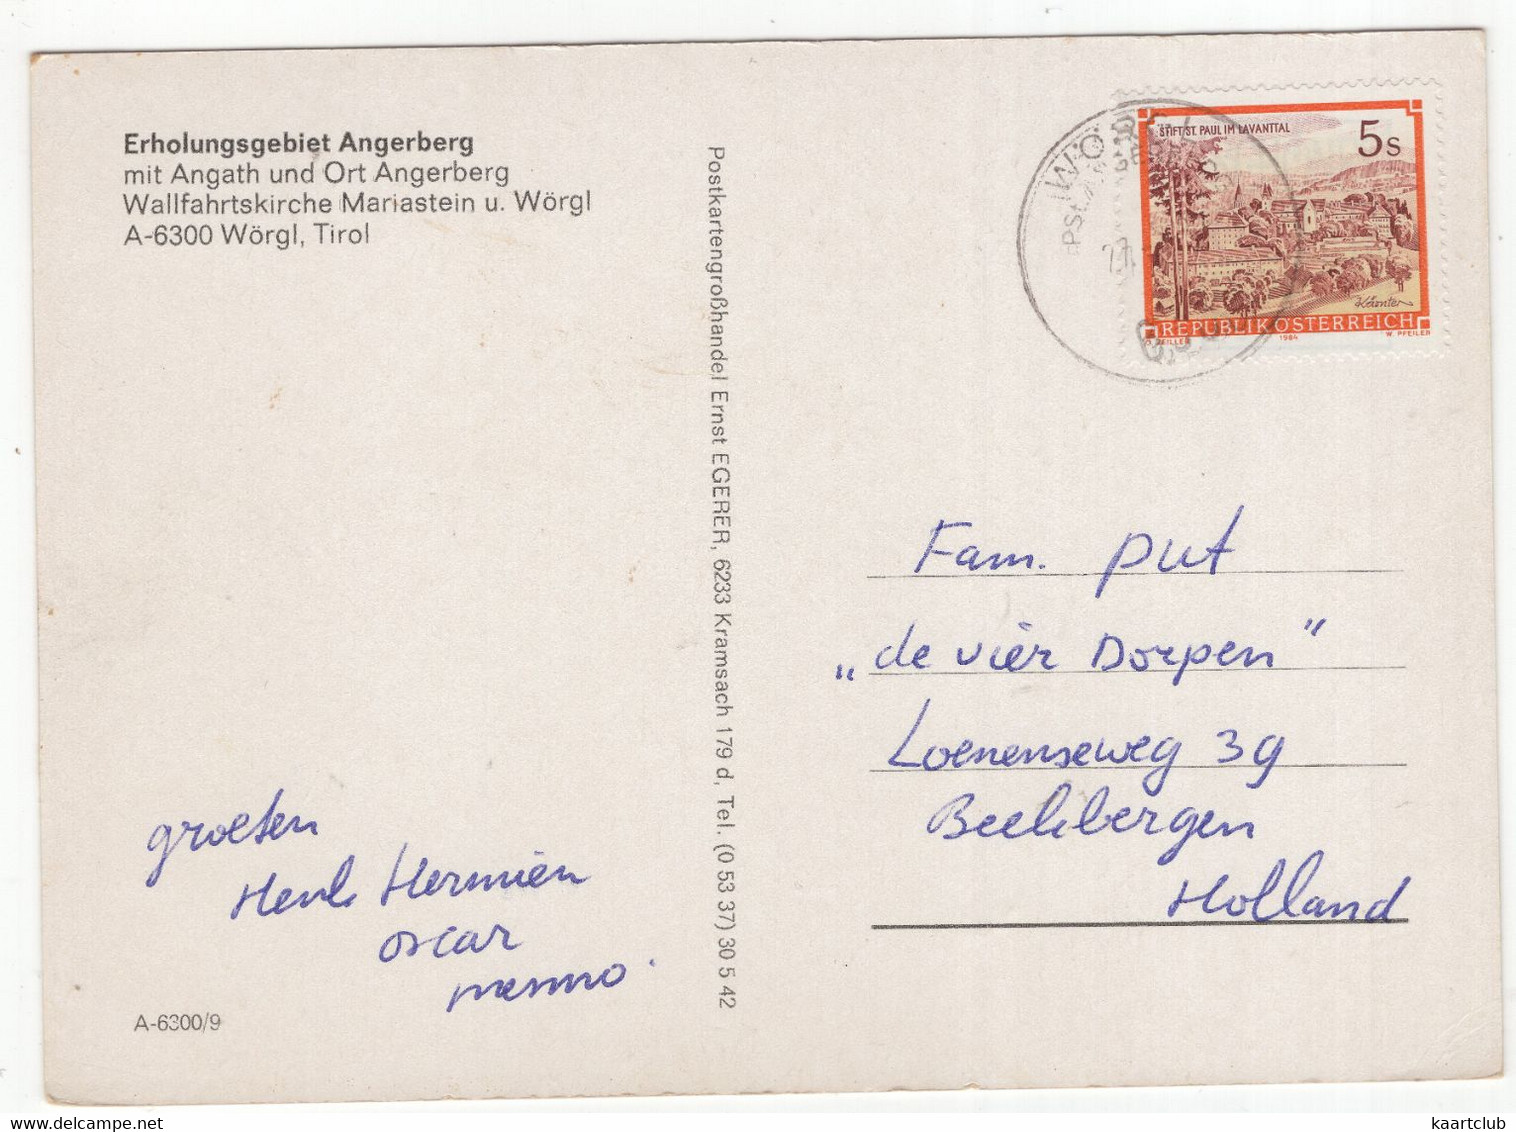 Erholungsgebiet Angerberg
mit Angath und Ort Angerberg
Wallfahrtskirche Mariastein u. Wörgl
A-6300 Wörgl, Tirol
groeten
Henk Hermien
oscar
menno.
A-6300/9
Postkartengroßhandel Ernst EGERER, 6233 Kramsach 179 d, Tel. (0 53 37) 30 5 42
WÖRGL
STIFT ST. PAUL IM LAVANTTAL
5s
REPUBLIK ÖSTERREICH
1984
W. PFEILER
Fam. put
„de vier Dorpen"
Loenenseweg 39
Beekbergen
Holland
www.delcampe.net
kaartclub